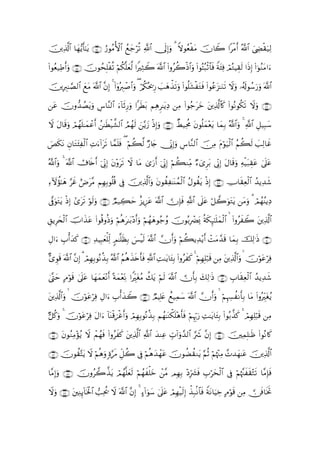 لِّيَقْضِىَ ٱللَّهُ أَمْرًا كَانَ مَفْعُولًا ۗ وَإِلَى ٱللَّهِ تُرْجَعُ ٱلْأُمُورُ ۝ يَـٰٓأَيُّهَا ٱلَّذِينَ
ءَامَنُوٓا۟ إِذَا لَقِيتُمْ فِئَةً فَٱثْبُتُوا۟ وَٱذْكُرُوا۟ ٱللَّهَ كَثِيرًا لَّعَلَّكُمْ تُفْلِحُونَ ۝ وَأَطِيعُوا۟
ٱللَّهَ وَرَسُولَهُۥ وَلَا تَنَـٰزَعُوا۟ فَتَفْشَلُوا۟ وَتَذْهَبَ رِيحُكُمْ ۖ وَٱصْبِرُوٓا۟ ۚ إِنَّ ٱللَّهَ مَعَ ٱلصَّـٰبِرِينَ
۝ وَلَا تَكُونُوا۟ كَٱلَّذِينَ خَرَجُوا۟ مِن دِيَـٰرِهِم بَطَرًا وَرِئَآءَ ٱلنَّاسِ وَيَصُدُّونَ عَن
سَبِيلِ ٱللَّهِ ۚ وَٱللَّهُ بِمَا يَعْمَلُونَ مُحِيطٌ ۝ وَإِذْ زَيَّنَ لَهُمُ ٱلشَّيْطَـٰنُ أَعْمَـٰلَهُمْ وَقَالَ لَا
غَالِبَ لَكُمُ ٱلْيَوْمَ مِنَ ٱلنَّاسِ وَإِنِّى جَارٌ لَّكُمْ ۖ فَلَمَّا تَرَآءَتِ ٱلْفِئَتَانِ نَكَصَ
عَلَىٰ عَقِبَيْهِ وَقَالَ إِنِّى بَرِىٓءٌ مِّنكُمْ إِنِّىٓ أَرَىٰ مَا لَا تَرَوْنَ إِنِّىٓ أَخَافُ ٱللَّهَ ۚ وَٱللَّهُ
شَدِيدُ ٱلْعِقَابِ ۝ إِذْ يَقُولُ ٱلْمُنَـٰفِقُونَ وَٱلَّذِينَ فِى قُلُوبِهِم مَّرَضٌ غَرَّ هَـٰٓؤُلَآءِ
دِينُهُمْ ۗ وَمَن يَتَوَكَّلْ عَلَى ٱللَّهِ فَإِنَّ ٱللَّهَ عَزِيزٌ حَكِيمٌ ۝ وَلَوْ تَرَىٰٓ إِذْ يَتَوَفَّى
ٱلَّذِينَ كَفَرُوا۟ ۙ ٱلْمَلَـٰٓئِكَةُ يَضْرِبُونَ وُجُوهَهُمْ وَأَدْبَـٰرَهُمْ وَذُوقُوا۟ عَذَابَ ٱلْحَرِيقِ
۝ ذَٰلِكَ بِمَا قَدَّمَتْ أَيْدِيكُمْ وَأَنَّ ٱللَّهَ لَيْسَ بِظَلَّـٰمٍ لِّلْعَبِيدِ ۝ كَدَأْبِ ءَالِ
فِرْعَوْنَ ۙ وَٱلَّذِينَ مِن قَبْلِهِمْ ۚ كَفَرُوا۟ بِـَٔايَـٰتِ ٱللَّهِ فَأَخَذَهُمُ ٱللَّهُ بِذُنُوبِهِمْ ۗ إِنَّ ٱللَّهَ قَوِىٌّ
شَدِيدُ ٱلْعِقَابِ ۝ ذَٰلِكَ بِأَنَّ ٱللَّهَ لَمْ يَكُ مُغَيِّرًا نِّعْمَةً أَنْعَمَهَا عَلَىٰ قَوْمٍ حَتَّىٰ
يُغَيِّرُوا۟ مَا بِأَنفُسِهِمْ ۙ وَأَنَّ ٱللَّهَ سَمِيعٌ عَلِيمٌ ۝ كَدَأْبِ ءَالِ فِرْعَوْنَ ۙ وَٱلَّذِينَ
مِن قَبْلِهِمْ ۚ كَذَّبُوا۟ بِـَٔايَـٰتِ رَبِّهِمْ فَأَهْلَكْنَـٰهُم بِذُنُوبِهِمْ وَأَغْرَقْنَآ ءَالَ فِرْعَوْنَ ۚ وَكُلٌّ
كَانُوا۟ ظَـٰلِمِينَ ۝ إِنَّ شَرَّ ٱلدَّوَآبِّ عِندَ ٱللَّهِ ٱلَّذِينَ كَفَرُوا۟ فَهُمْ لَا يُؤْمِنُونَ ۝
ٱلَّذِينَ عَـٰهَدتَّ مِنْهُمْ ثُمَّ يَنقُضُونَ عَهْدَهُمْ فِى كُلِّ مَرَّةٍ وَهُمْ لَا يَتَّقُونَ ۝
فَإِمَّا تَثْقَفَنَّهُمْ فِى ٱلْحَرْبِ فَشَرِّدْ بِهِم مَّنْ خَلْفَهُمْ لَعَلَّهُمْ يَذَّكَّرُونَ ۝ وَإِمَّا
تَخَافَنَّ مِن قَوْمٍ خِيَانَةً فَٱنۢبِذْ إِلَيْهِمْ عَلَىٰ سَوَآءٍ ۚ إِنَّ ٱللَّهَ لَا يُحِبُّ ٱلْخَآئِنِينَ ۝ وَلَا